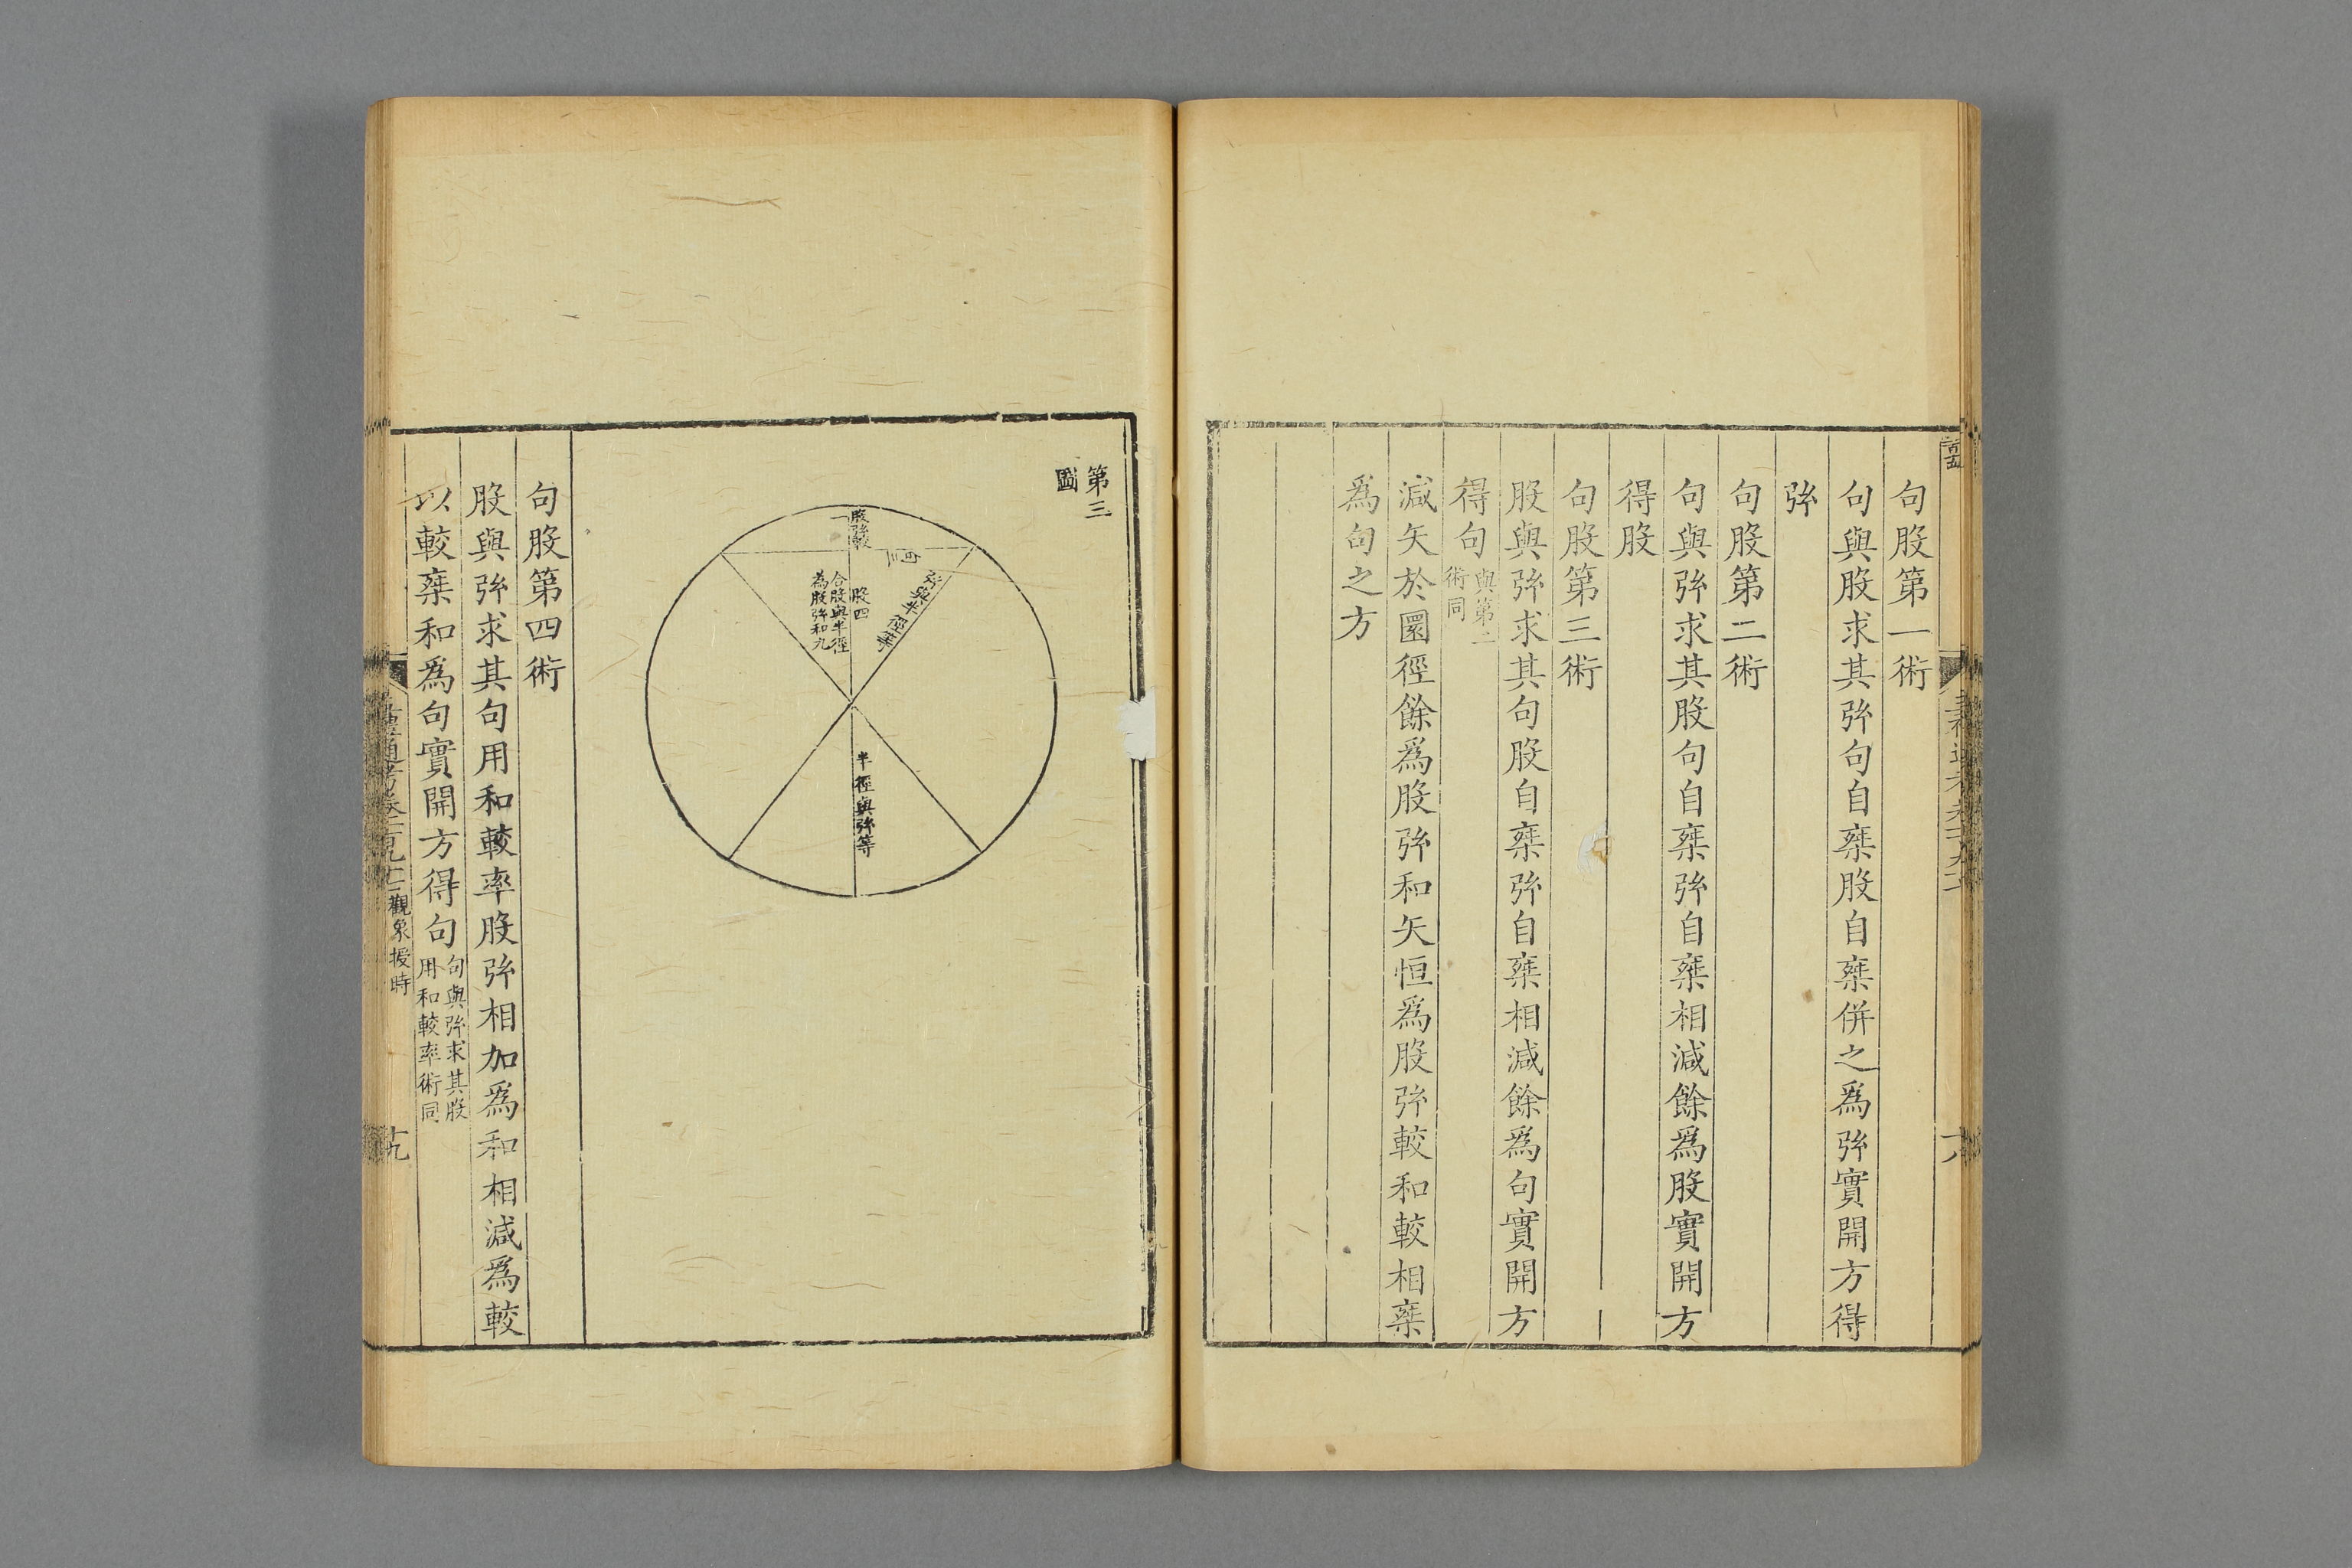 句股第一術
句與股求其弦句自乗股自乗併之爲弦實開方得
弦
句股第二術
句與弦求其股句自乗弦自乗相減餘爲股實開方
得股
句股第三術
股與弦求其句股自乗弦自乗相減餘爲句實開方
得句與第二術同
減矢於圜徑餘爲股弦和矢恒爲股弦較和較相乗
爲句之方
第三
圖
股弦較
一
句三
弦與半徑等
股四
合股與半徑
為股弦和九
半徑與弦等
句股第四術
股與弦求其句用和較率股弦相加爲和相減爲較
以較乗和爲句實開方得句句與弦求其股用和較率術同
觀象授時
十九